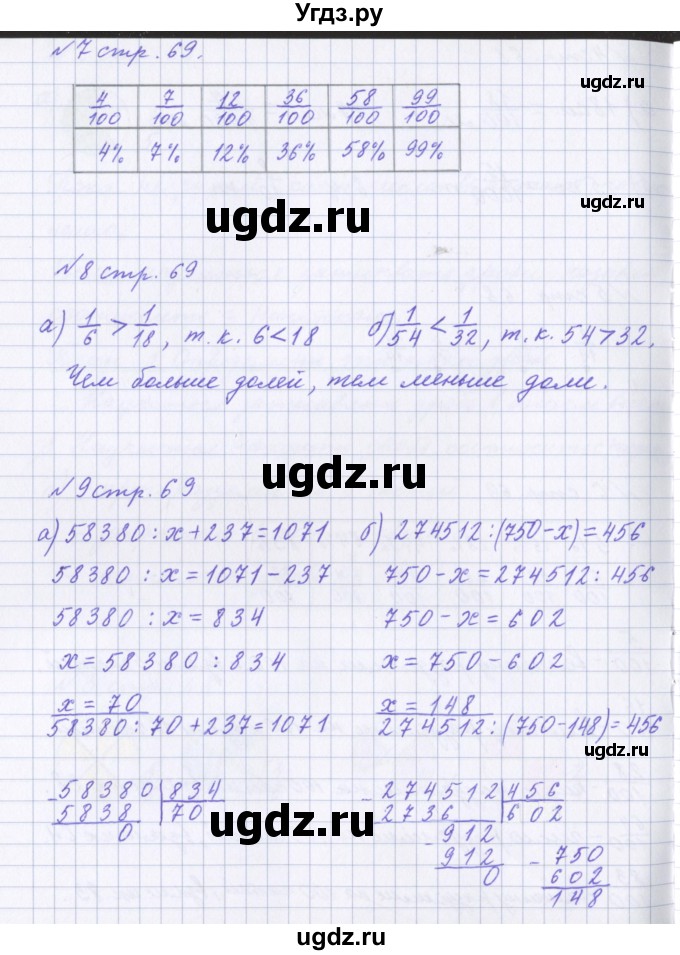 Угдз.ру
№7 стр. 69.
ugdz.ru
4/100 7/100 12/100 36/100 58/100 99/100
4% 7% 12% 36% 58% 99%
ugdz.ru
ugdz.ru
№8 стр. 69
а) 1/6 > 1/18, т.к. 6<18 б) 1/54 < 1/32, т.к. 54>32.
ugdz.ru
Чем больше долей, тем меньше доли.
ugdz.ru
№9 стр. 69
а) 58380 : x + 237 = 1071 б) 274512 : (750 - x) = 456
58380 : x = 1071 - 237 750 - x = 274512 : 456
58380 : x = 834 750 - x = 602
x = 58380 : 834 x = 750 - 602
x = 70 x = 148
58380 : 70 + 237 = 1071 274512 : (750 - 148) = 456
ugdz.ru
ugdz.ru
58380 834 274512 456
5838 70 2736 602
0 912
912 750
0 602
148
ugdz.ru